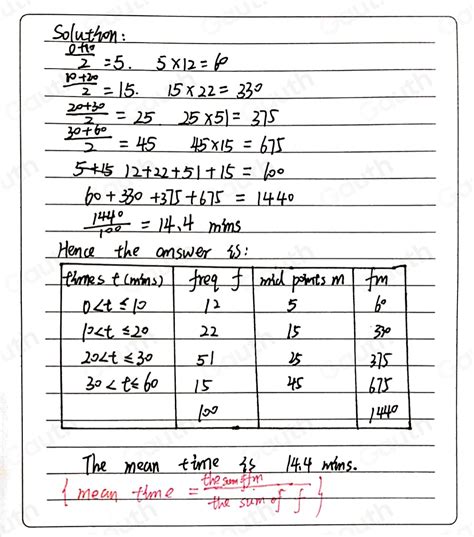 Solution:
0+10/2 = 5. 5×12 = 60
10+20/2 = 15. 15×22 = 330
20+30/2 = 25 25×51 = 375
30+60/2 = 45 45×15 = 675
5+15 12+22+51+15 = 100
60+330+375+675 = 1440
1440/100 = 14.4 mins
Hence the answer is:
times t (mins) freq f mid points m fm
0<t≤10 12 5 60
10<t≤20 22 15 330
20<t≤30 51 25 375
30<t≤60 15 45 675
100 1440
The mean time is 14.4 mins.
{mean time = the sum of fm/the sum of f}